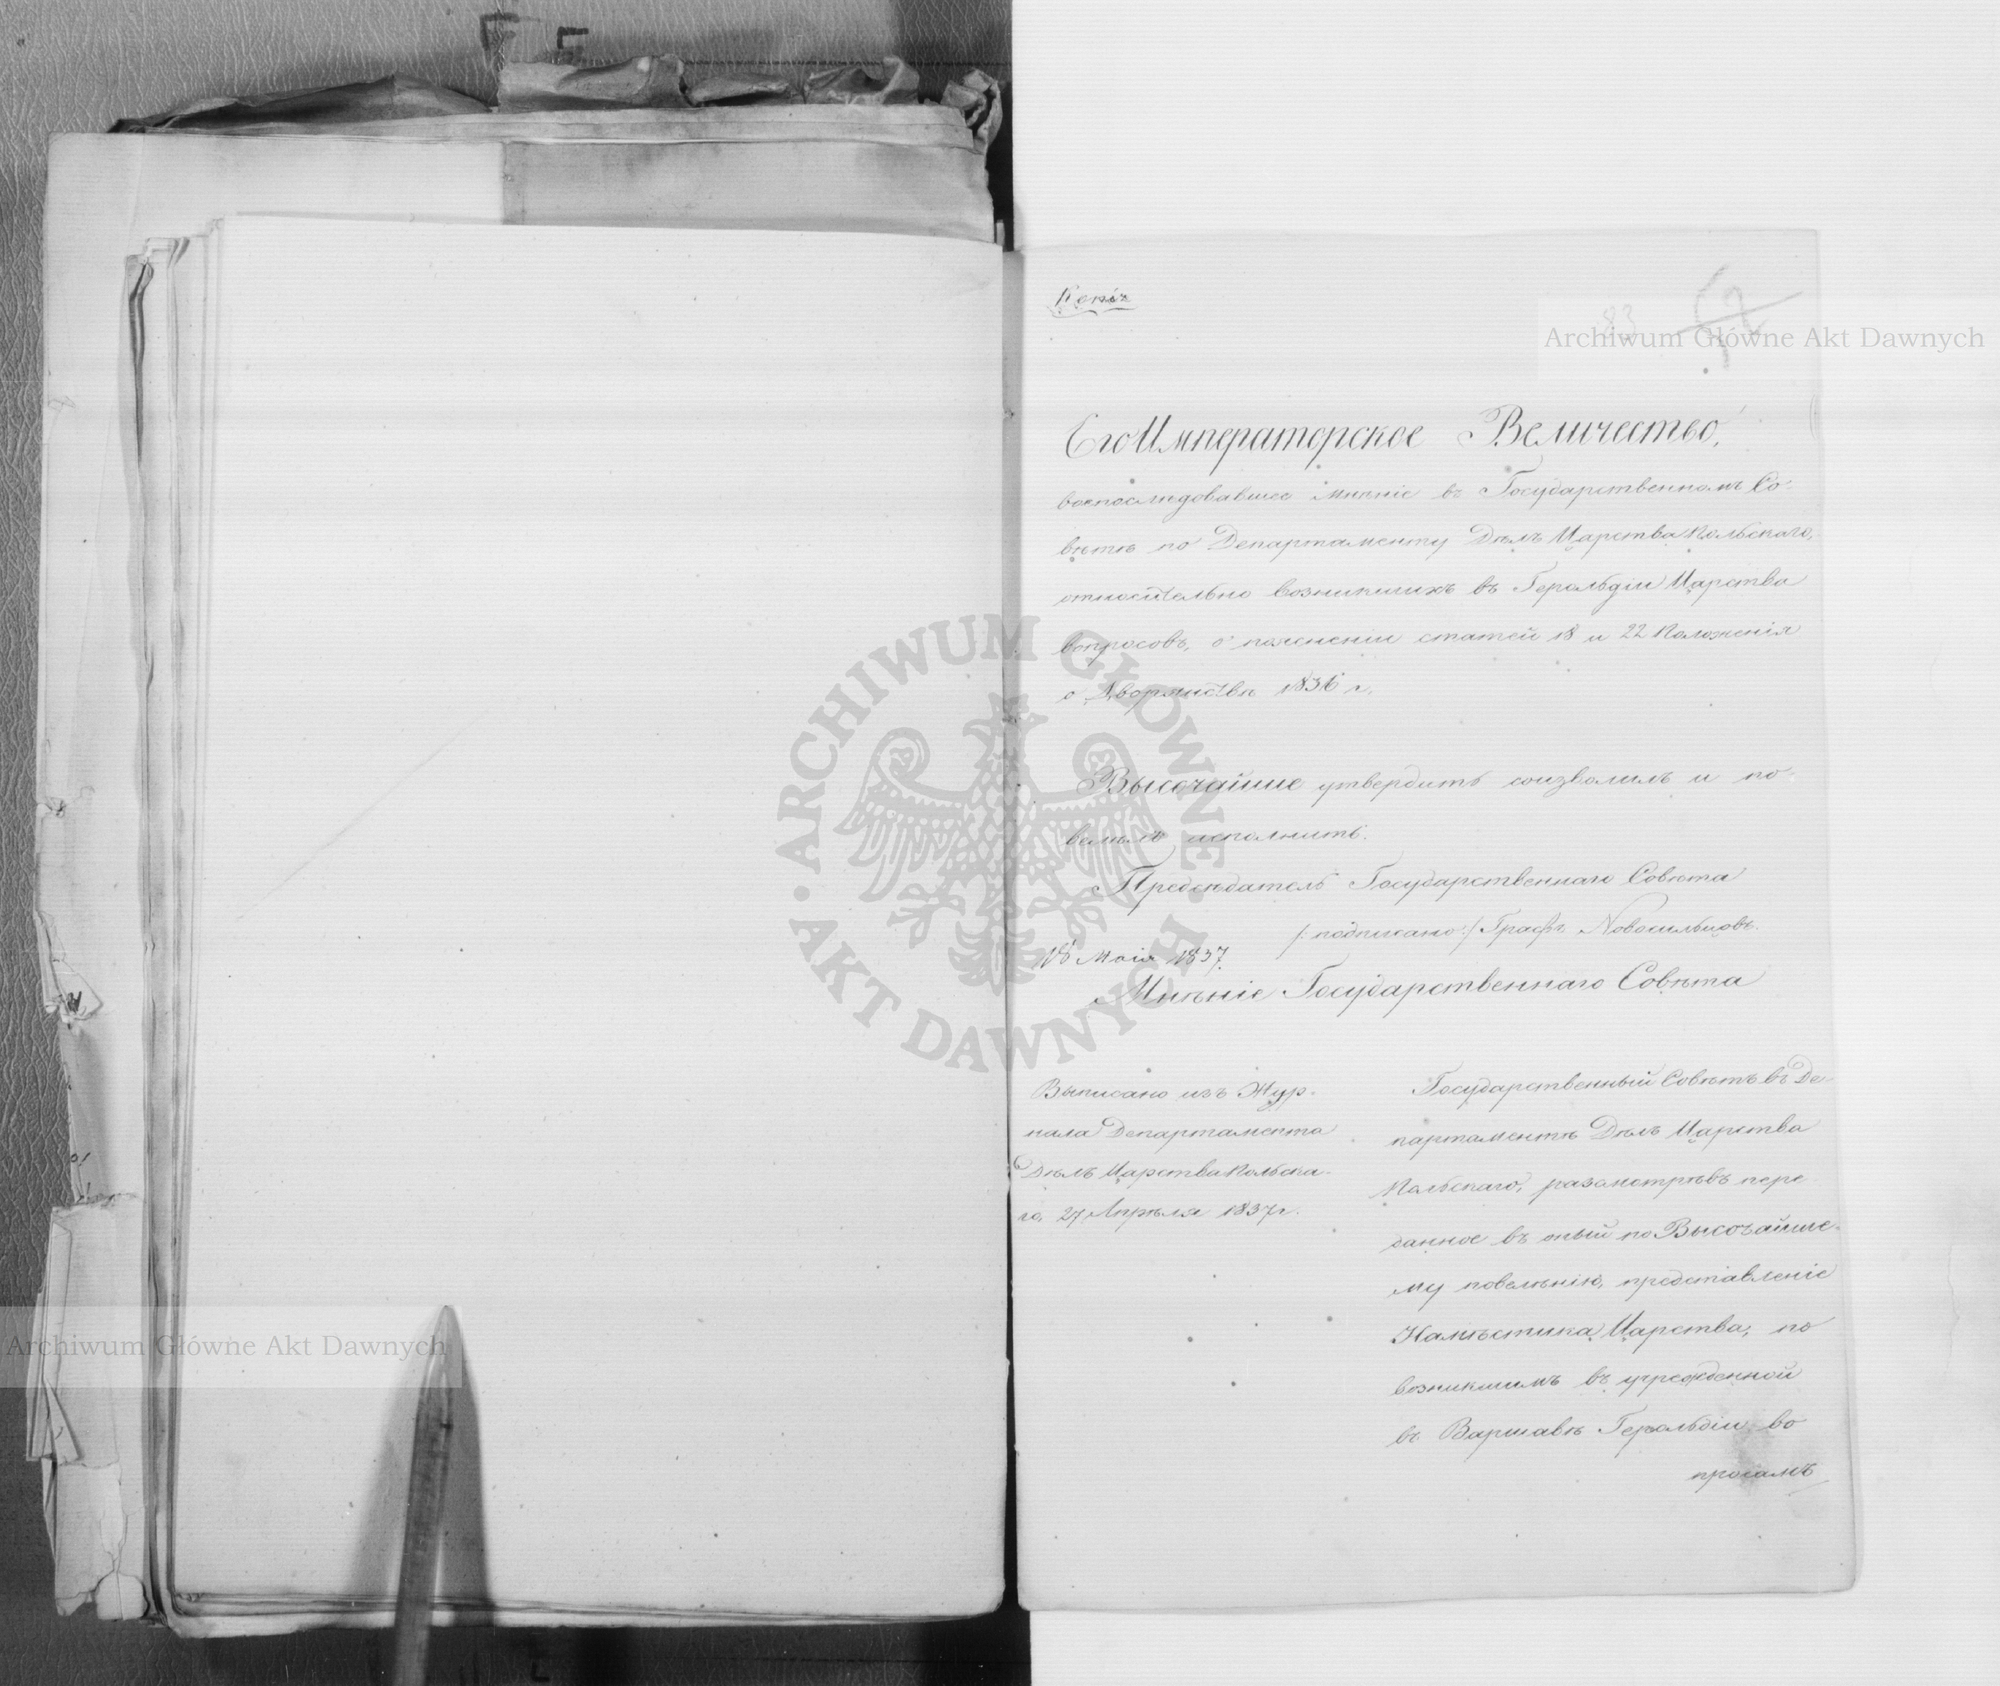 Копія
83
Его Императорское Величество,
воспослѣдовавшее мнѣніе въ Государственномъ Со-
вѣтѣ по Департаменту Дѣлъ Царства Польскаго,
относительно возникшихъ въ Герольдіи Царства
вопросовъ, о поясненіи статей 18 и 22 Положенія
о Дворянствѣ 1836 г.
Высочайше утвердить соизволилъ и по-
велѣлъ исполнить.
Предсѣдатель Государственнаго Совѣта
/:подписано:/ Графъ Новосильцовъ.
18 Маія 1837.
Мнѣніе Государственнаго Совѣта
Выписано изъ Жур-
нала Департамента
Дѣлъ Царства Польска-
го, 27 Апрѣля 1837 г.
Государственный Совѣтъ въ Де-
партаментѣ Дѣлъ Царства
Польскаго, разсмотрѣвъ пере
данное въ оный по Высочайше-
му повелѣнію, представленіе
Намѣстника Царства, по
возникшимъ въ учрежденной
въ Варшавѣ Герольдіи во
просамъ
Archiwum Główne Akt Dawnych
Archiwum Główne Akt Dawnych
ARCHIWUM GŁÓWNE AKT DAWNYCH